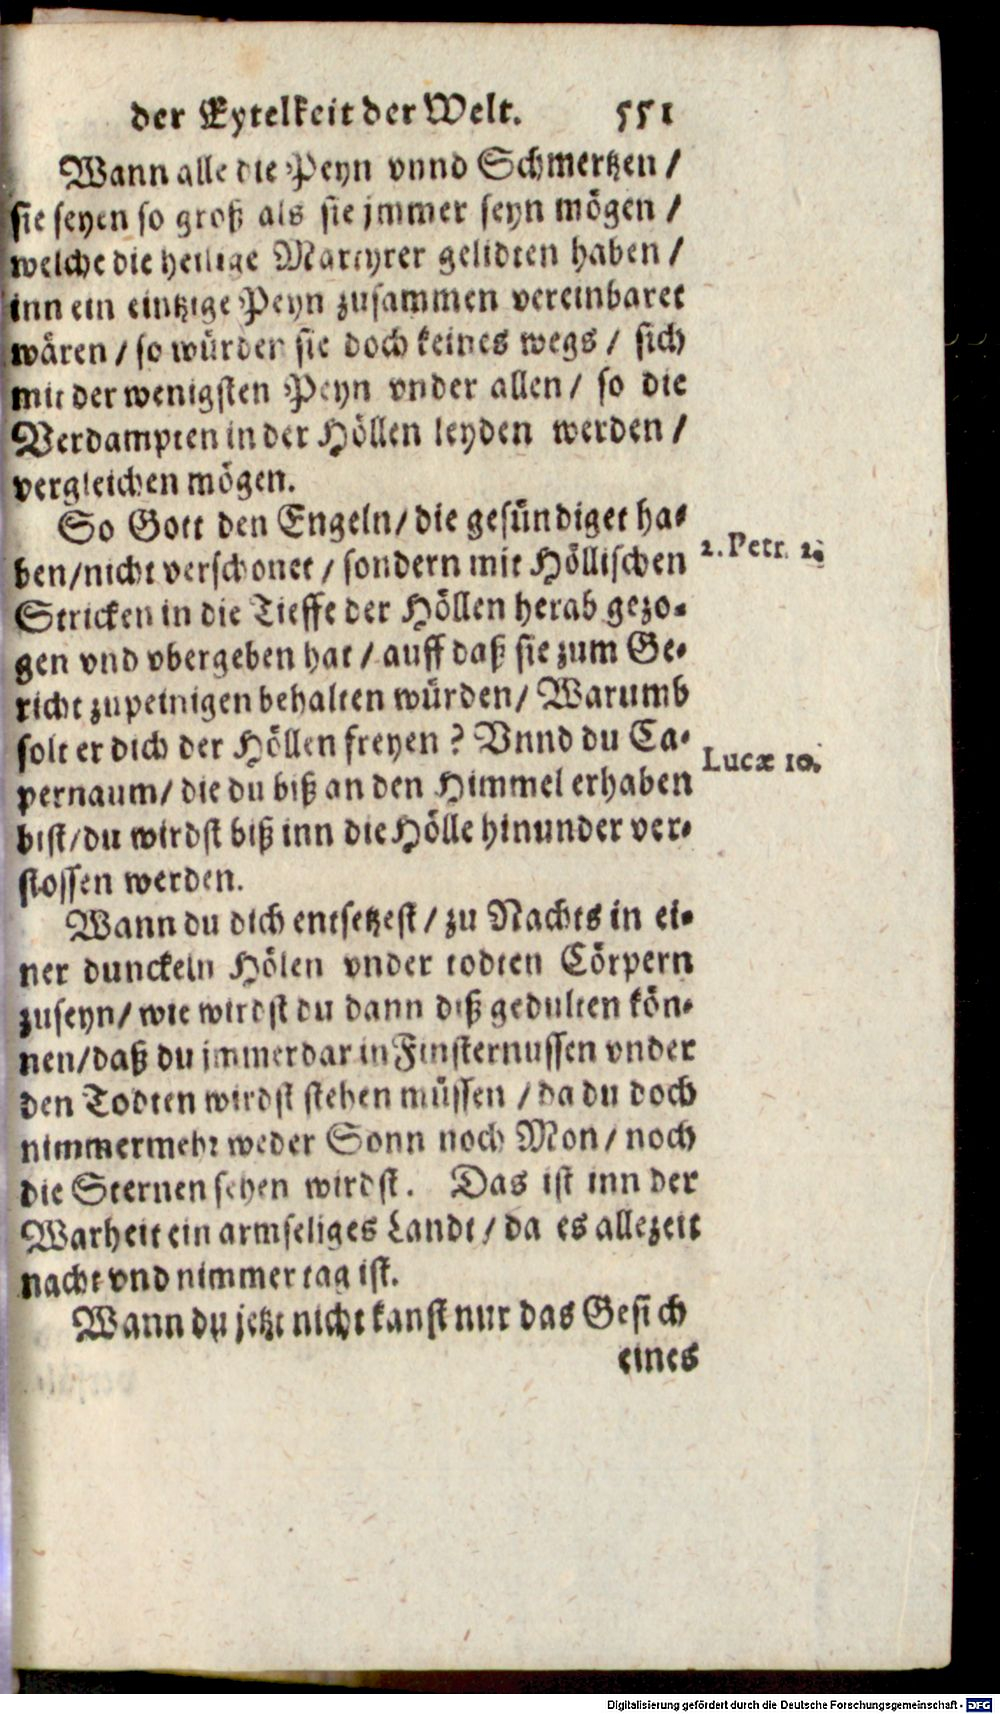 der Eytelkeit der Welt. 551
Wann alle die Peyn vnnd Schmertzen /
sie seyen so groß als sie jmmer seyn mögen /
welche die heilige Martyrer gelidten haben /
inn ein eintzige Peyn zusammen vereinbaret
wären / so würden sie doch keines wegs / sich
mit der wenigsten Peyn vnder allen / so die
Verdampten in der Höllen leyden werden /
vergleichen mögen.
So Gott den Engeln / die gesündiget ha-
ben / nicht verschonet / sondern mit Höllischen
2. Petr. 2.
Stricken in die Tieffe der Höllen herab gezo-
gen vnd vbergeben hat / auff daß sie zum Ge-
richt zupeinigen behalten würden / Warumb
solt er dich der Höllen freyen ? Vnnd du Ca-
Lucæ 10.
pernaum / die du biß an den Himmel erhaben
bist / du wirdst biß inn die Hölle hinunder ver-
stossen werden.
Wann du dich entsetzest / zu Nachts in ei-
ner dunckeln Hölen vnder todten Cörpern
zuseyn / wie wirdst du dann diß gedulten kön-
nen / daß du jmmerdar in Finsternussen vnder
den Todten wirdst stehen müssen / da du doch
nimmermehr weder Sonn noch Mon / noch
die Sternen sehen wirdst. Das ist inn der
Warheit ein armseliges Landt / da es allezeit
nacht vnd nimmer tag ist.
Wann du jetzt nicht kanst nur das Gesich
eines
Digitalisierung gefördert durch die Deutsche Forschungsgemeinschaft - DFG